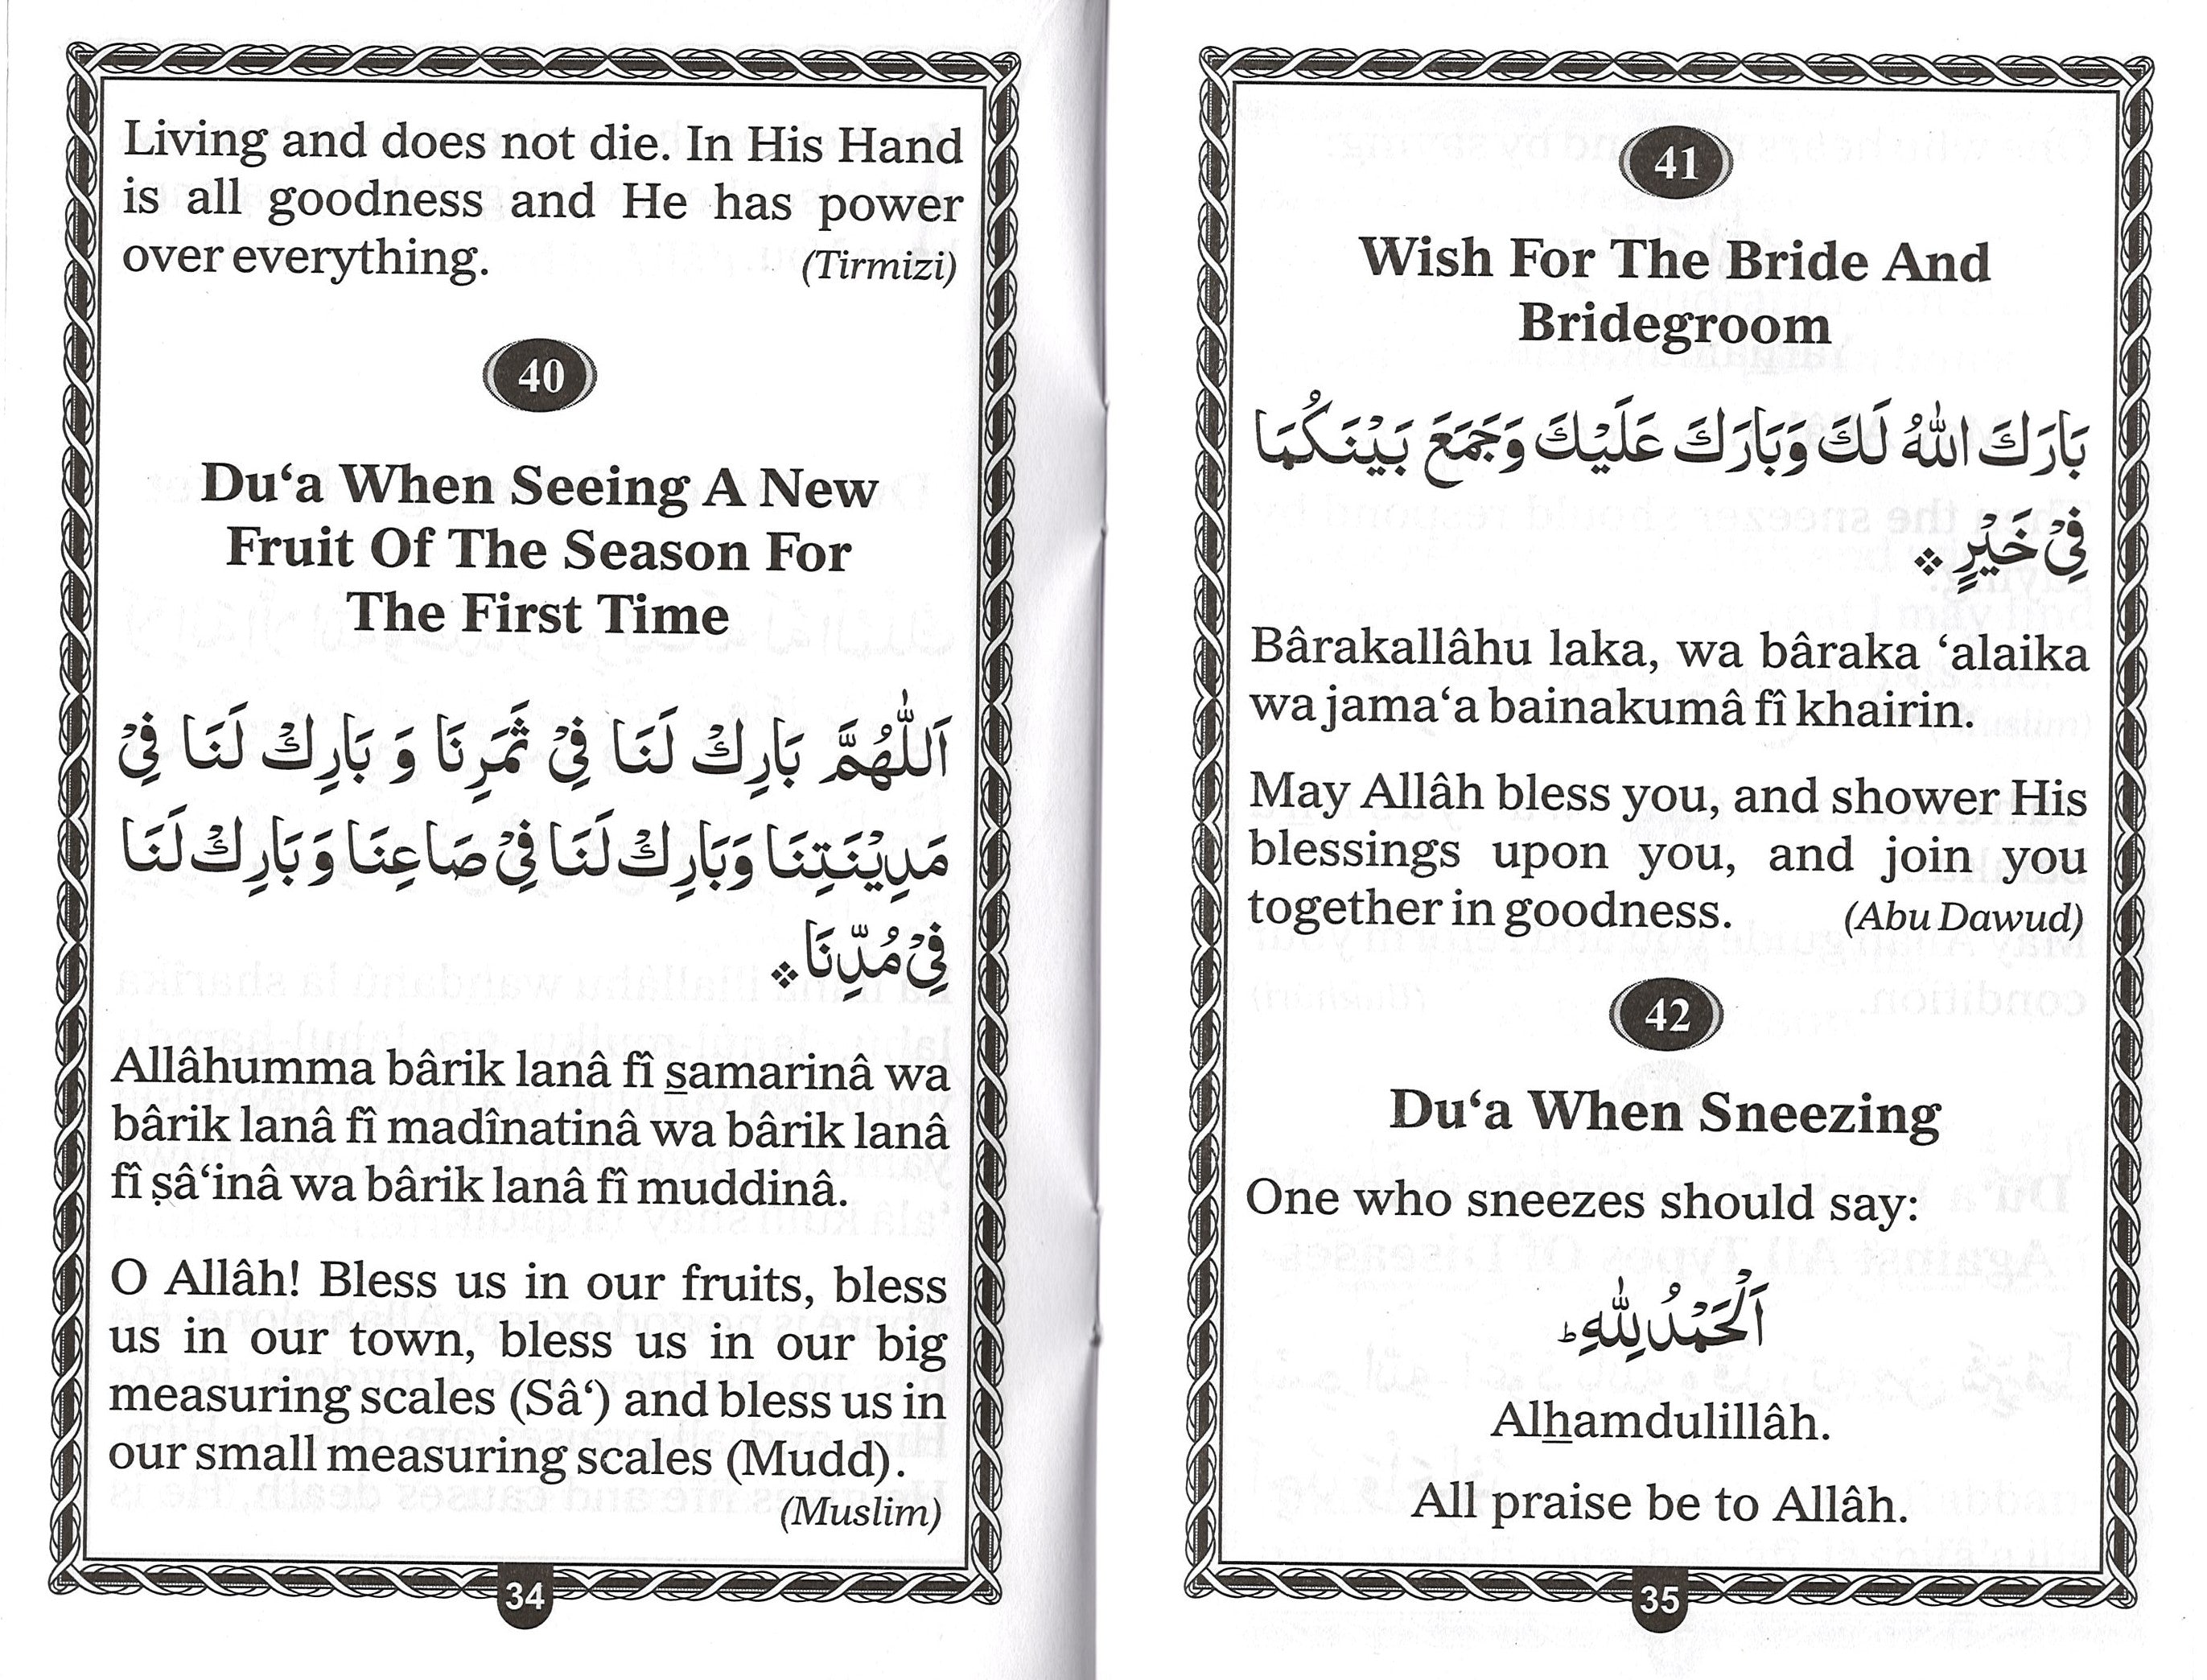 Living and does not die. In His Hand
is all goodness and He has power
over everything. (Tirmizi)
40
Du‘a When Seeing A New
Fruit Of The Season For
The First Time
اَللّٰهُمَّ بَارِكْ لَنَا فِيْ ثَمَرِنَا وَ بَارِكْ لَنَا فِيْ
مَدِيْنَتِنَا وَبَارِكْ لَنَا فِيْ صَاعِنَا وَ بَارِكْ لَنَا
فِيْ مُدِّنَا ❖
Allâhumma bârik lanâ fî s̱amarinâ wa
bârik lanâ fî madînatinâ wa bârik lanâ
fî ṣâ‘inâ wa bârik lanâ fî muddinâ.
O Allâh! Bless us in our fruits, bless
us in our town, bless us in our big
measuring scales (Sâ‘) and bless us in
our small measuring scales (Mudd).
(Muslim)
34
41
Wish For The Bride And
Bridegroom
بَارَكَ اللّٰهُ لَكَ وَبَارَكَ عَلَيْكَ وَجَمَعَ بَيْنَكُمَا
فِيْ خَيْرٍ ❖
Bârakallâhu laka, wa bâraka ‘alaika
wa jama‘a bainakumâ fî khairin.
May Allâh bless you, and shower His
blessings upon you, and join you
together in goodness. (Abu Dawud)
42
Du‘a When Sneezing
One who sneezes should say:
اَلْحَمْدُ لِلّٰهِ ؕ
Alẖamdulillâh.
All praise be to Allâh.
35